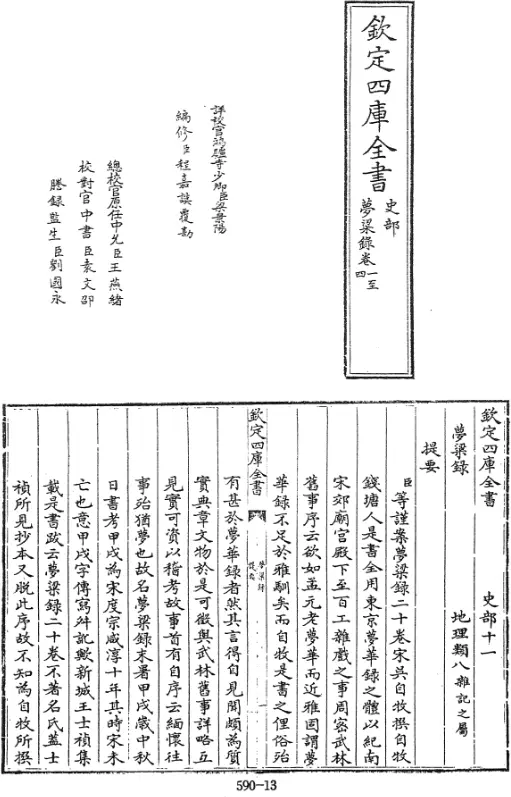 欽定四庫全書
史部
夢粱錄卷一至
四
詳校官鴻臚寺少卿臣梁景陽
編修臣程嘉謨覆勘
總校官原任中允臣王燕緒
校對官中書臣袁文邵
謄錄監生臣劉國永
欽定四庫全書 史部十一
夢粱錄 地理類八雜記之屬
提要
臣等謹案夢粱錄二十卷宋吳自牧撰自牧
錢塘人是書全用東京夢華錄之體以紀南
宋郊廟宮殿下至百工雜戲之事周密武林
舊事序云欲如孟元老夢華而近雅固謂夢
華錄不足於雅馴矣而自牧是書之俚俗殆
欽定四庫全書
夢粱錄
提要
有甚於夢華錄者然其言得自見聞頗為質
實典章文物於是可徵與武林舊事詳略互
見實可資以稽考故事首有自序云緬懷往
事殆猶夢也故名夢粱錄末署甲戌歲中秋
日書考甲戌為宋度宗咸淳十年其時宋未
亡也意甲戌字傳寫舛訛歟新城王士禎集
載是書跋云夢粱錄二十卷不著名氏蓋士
禎所見抄本又脫此序故不知為自牧所撰
590-13